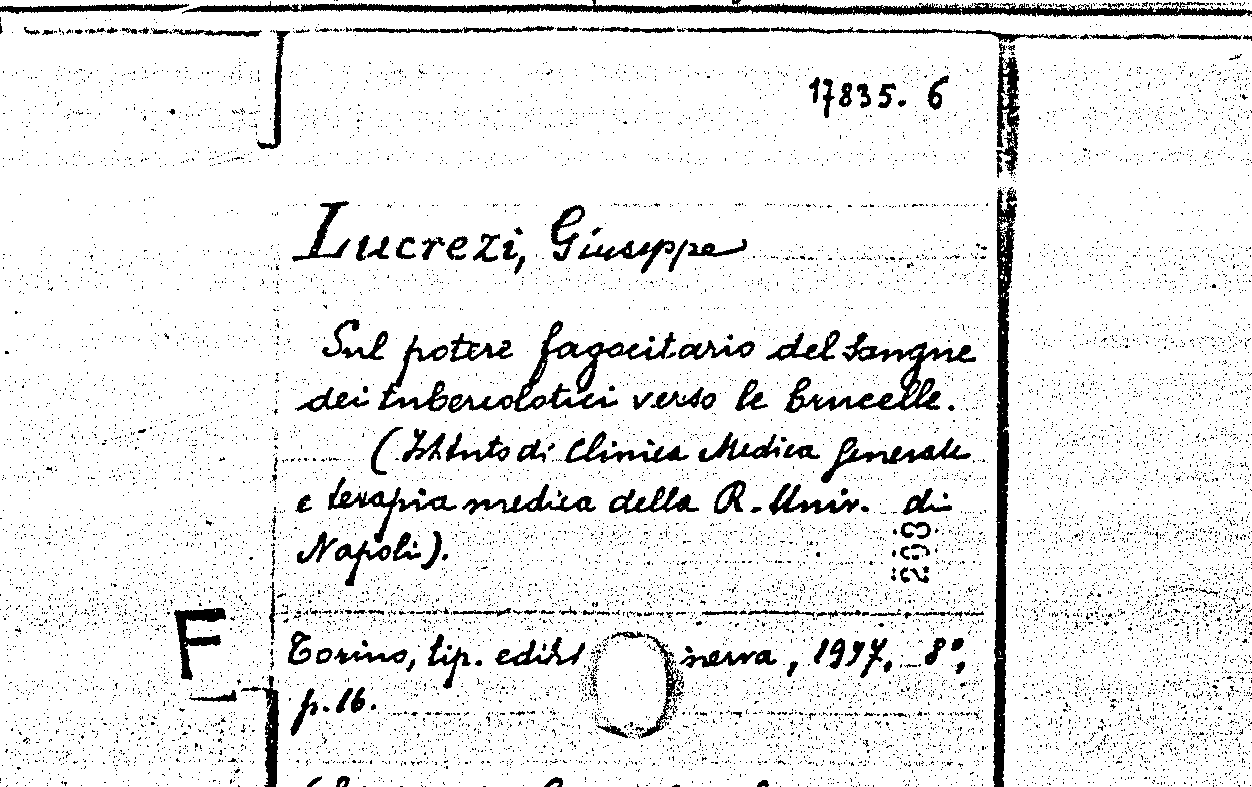 17835. 6
Lucrezi, Giuseppe
Sul potere fagocitario del sangue
dei tubercolotici verso le brucelle.
(Istituto di Clinica Medica Generale
e terapia medica della R. Univ. di
Napoli).
203
F
Torino, tip. edit nerva, 1937, 8°,
p. 16.